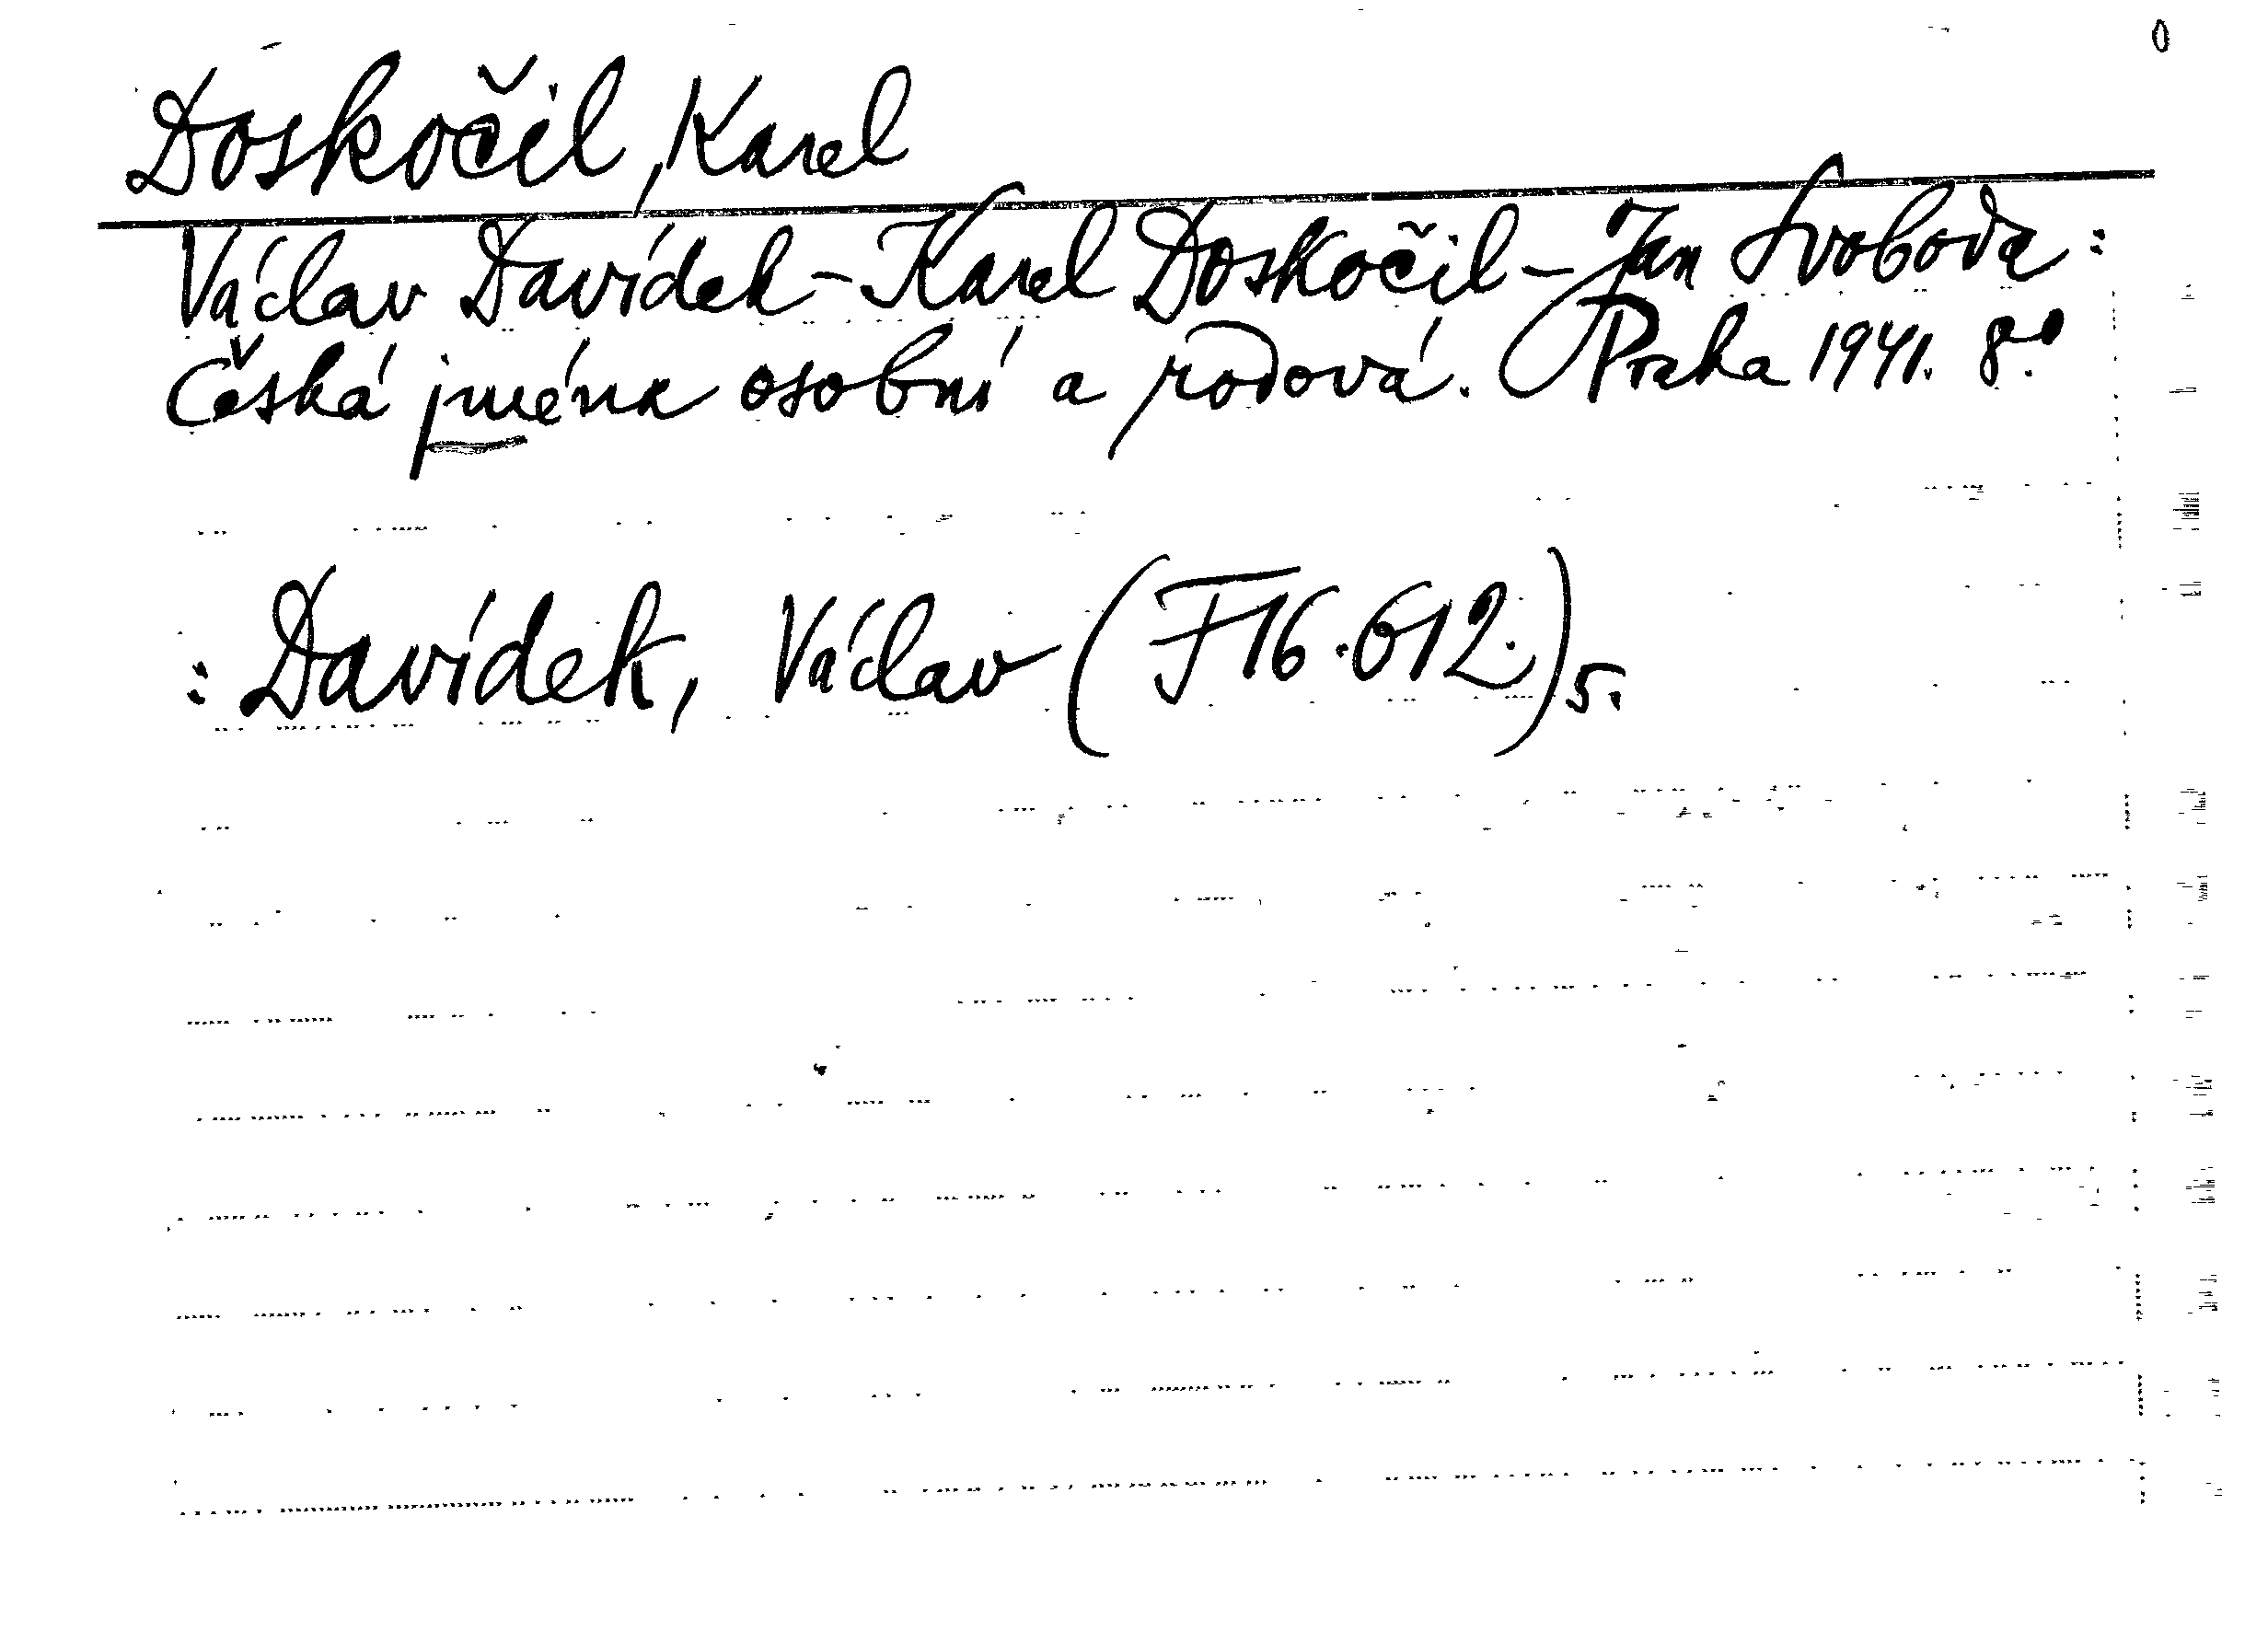 Doskočil, Karel
Václav Davídek - Karel Doskočil - Jan Svoboda:
Česká jména osobní a rodová. Praha 1941. 8°.
: Davídek, Václav (F 16.612.)5.